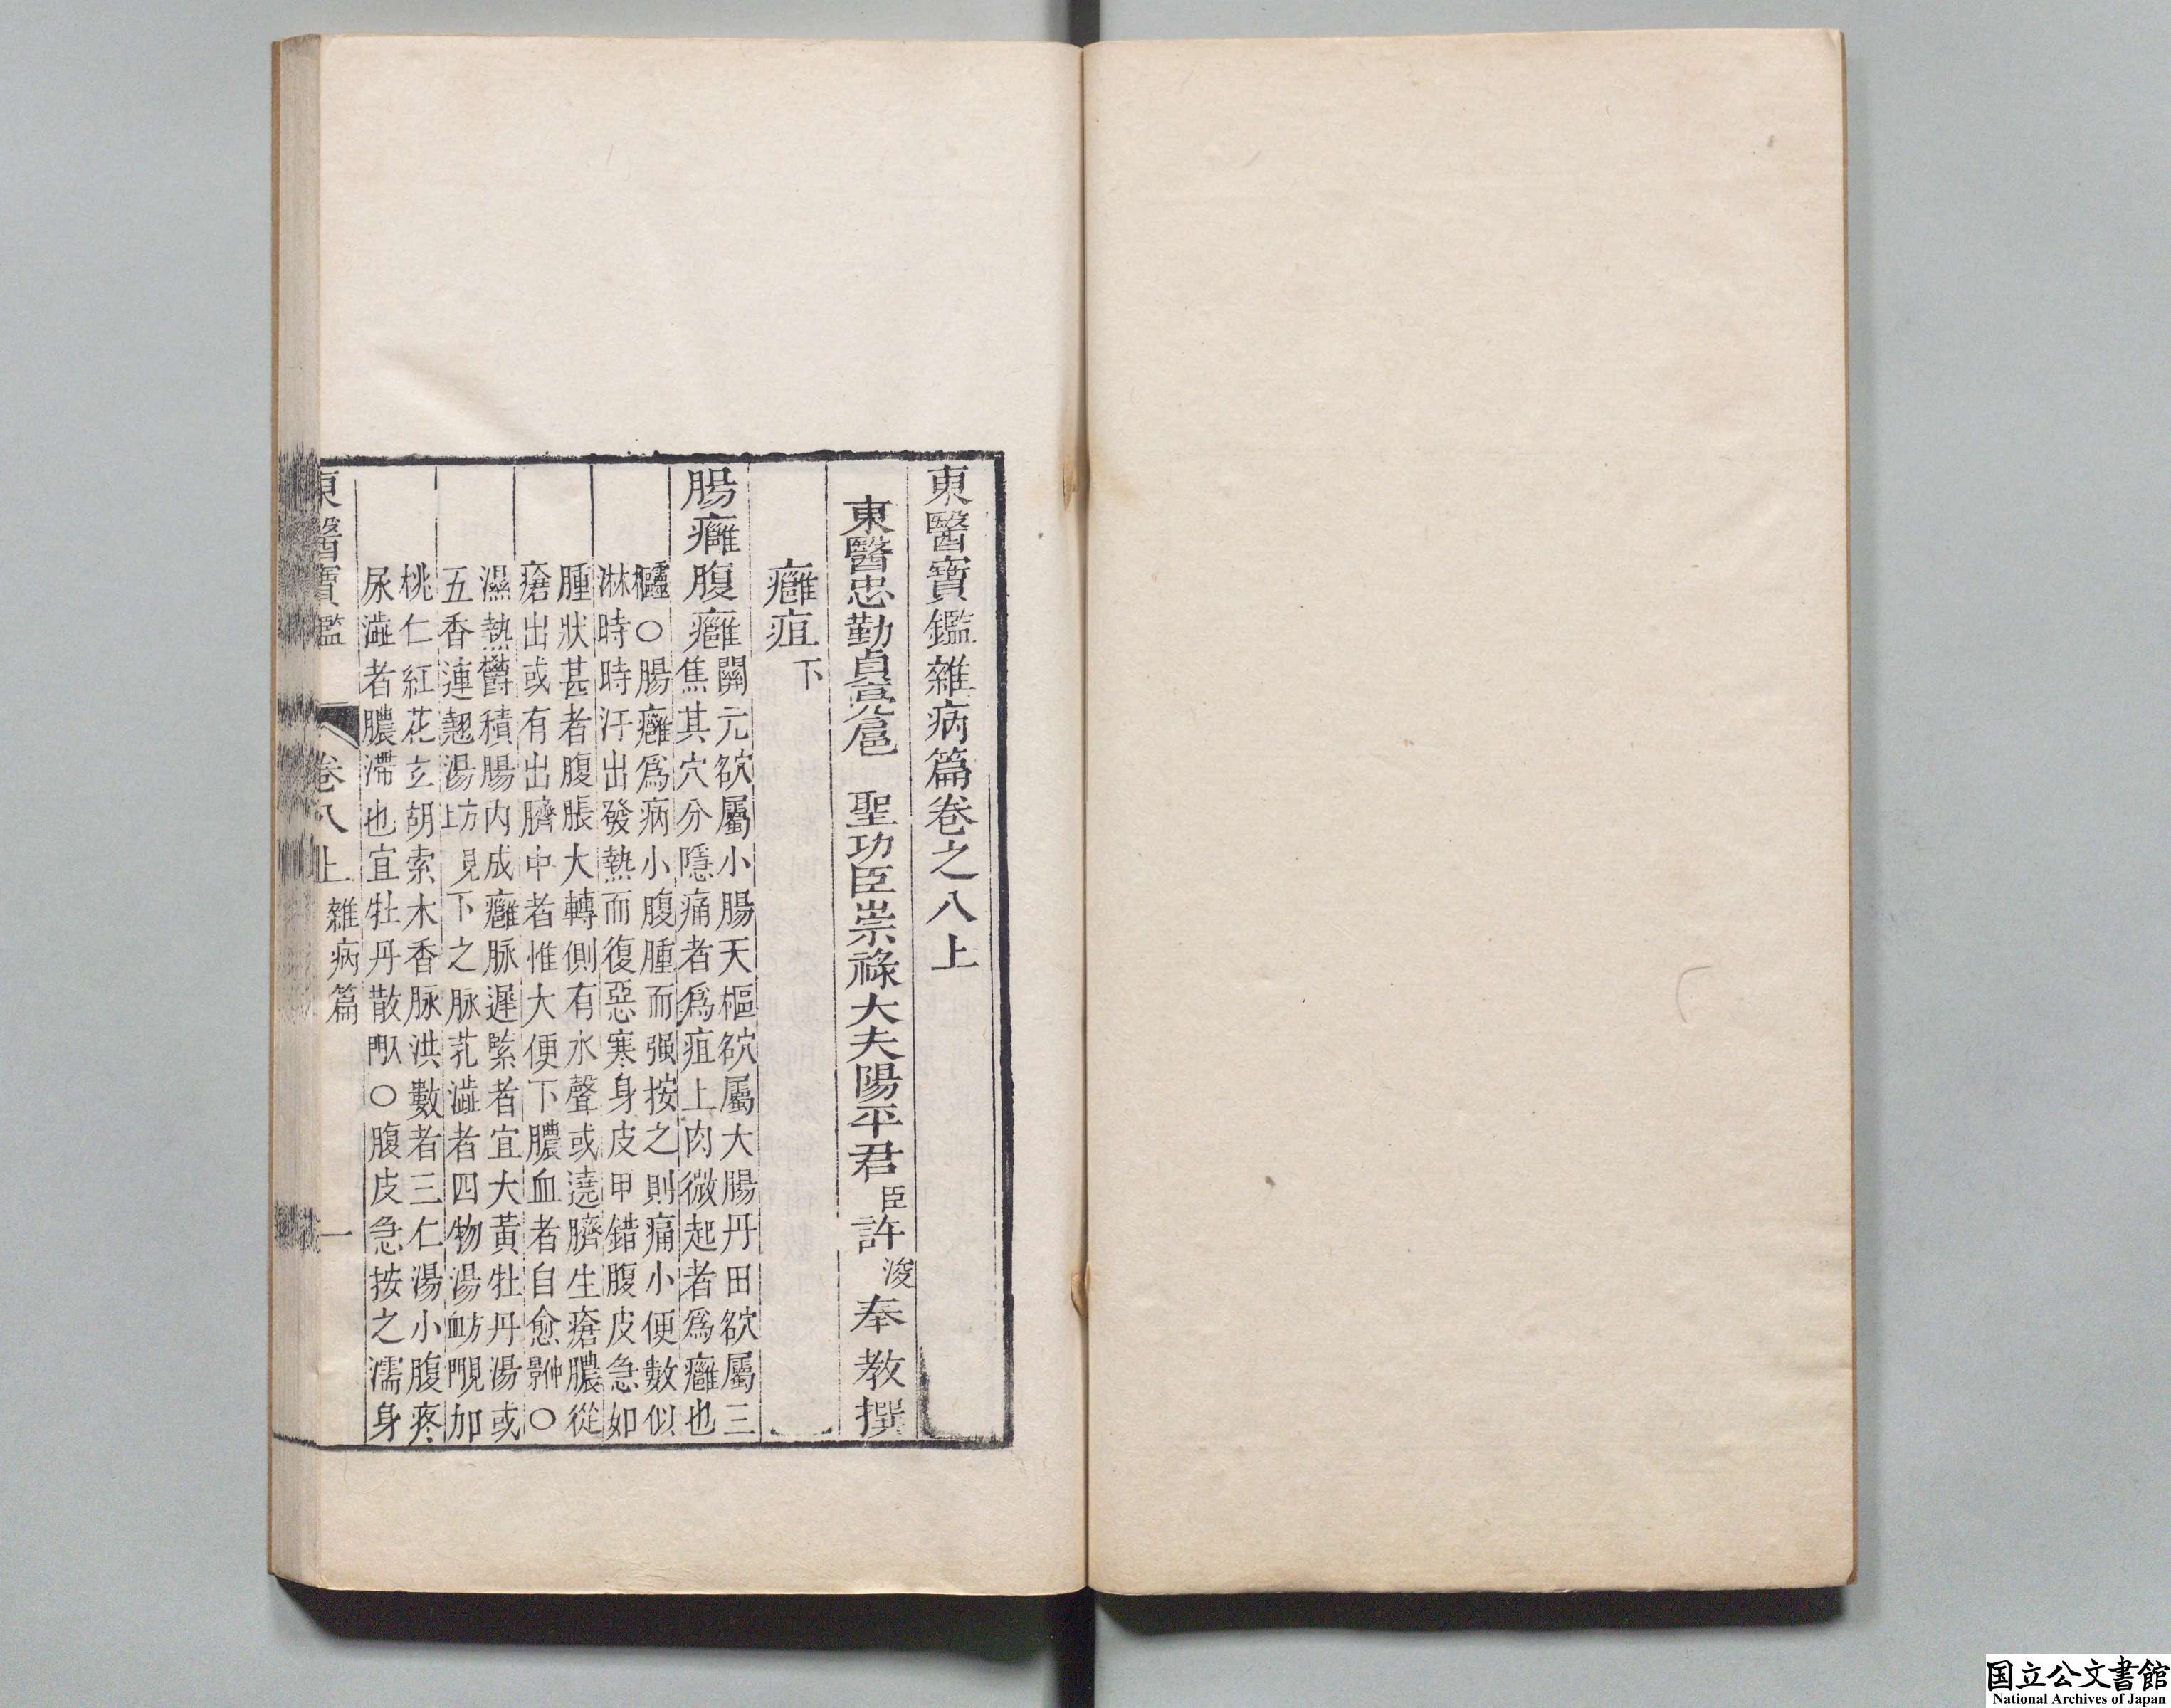 東醫寶鑑雜病篇卷之八上
東醫忠勤貞亮扈　聖功臣崇祿大夫陽平君臣許浚奉教撰
癰疽下
腸癰腹癰
關元穴屬小腸天樞穴屬大腸丹田穴屬三
焦其穴分隱痛者爲疽上肉微起者爲癰也
靈樞○腸癰爲病小腹腫而强按之則痛小便數似
淋時時汗出發熱而復惡寒身皮甲錯腹皮急如
腫狀甚者腹脹大轉側有水聲或遶臍生瘡膿從
瘡出或有出臍中者惟大便下膿血者自愈仲景○
濕熱欝積腸內成癰脉遲緊者宜大黃牡丹湯或
五香連翹湯方見上下之脉芤澁者四物湯方見血門加
桃仁紅花玄胡索木香脉洪數者三仁湯小腹疼
尿澁者膿滯也宜牡丹散入門○腹皮急按之濡身
東醫寶鑑　卷八上　雜病篇　一
国立公文書館
National Archives of Japan